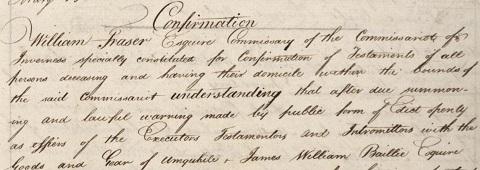 Confirmation
William Fraser Esquire Commissary of the Commissariot of
Inverness specially constituted for Confirmation of Testaments of all
persons deceasing and having their domicile within the bounds of
the said Commissariot understanding that after due summon-
ing and lawful warning made by public form of Edict openly
as effiers of the Executors Testamentors and Intromittors with the
Goods and Gear of Umquhile James William Baillie Esquire